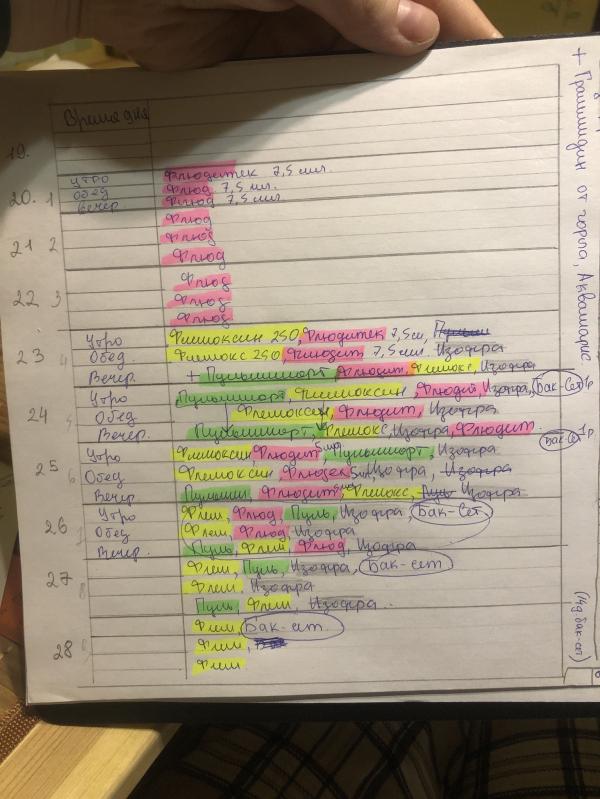 Время дня
19.
утро Флюдитек 7,5 мл.
20. 1 Обед Флюд 7,5 мл.
Вечер Флюд 7,5 мл.
Флюд
21 2 Флюд
Флюд
Флюд
22 3 Флюд
Флюд
Утро Флемоксин 250, Флюдитек 7,5 мл,
23 4 Обед. Флемокс 250 Флюдит 7,5 мл. Изофра
Вечер. + Пульмикорт Флюдит, Флемокс, Изофра
Утро Пульмикорт, Флемоксин, Флюдит, Изофра, Бак-Сет 1р
24 5 Обед Флемоксин, Флюдит,
Вечер. Пульмикорт, Флемокс, Изофра, Флюдит. Бак Сет 1р
Утро Флемоксин, Флюдит 5 мл, Пульмикорт, Изофра
25 6 Обед Флемоксин, Флюдек 5 мл, Изофра, Изофра
Вечер Пульми, Флюдит, Флемокс, Пуль Изофра
Утро Флем, Флюд, Пуль, Изофра, Бак-Сет
26 Обед, Флем, Флюд Изофра
Вечер Пуль, Флем, Флюд, Изофра
Флем, Пуль, Изофра, Бак-сет
27 8 Флем. Изофра
Пуль, Флем, Изофра.
Флем, Бак-сет.
28 Флем,
Флем
+ Граммидин от горла, Аквамарис
(14д бак-сет)